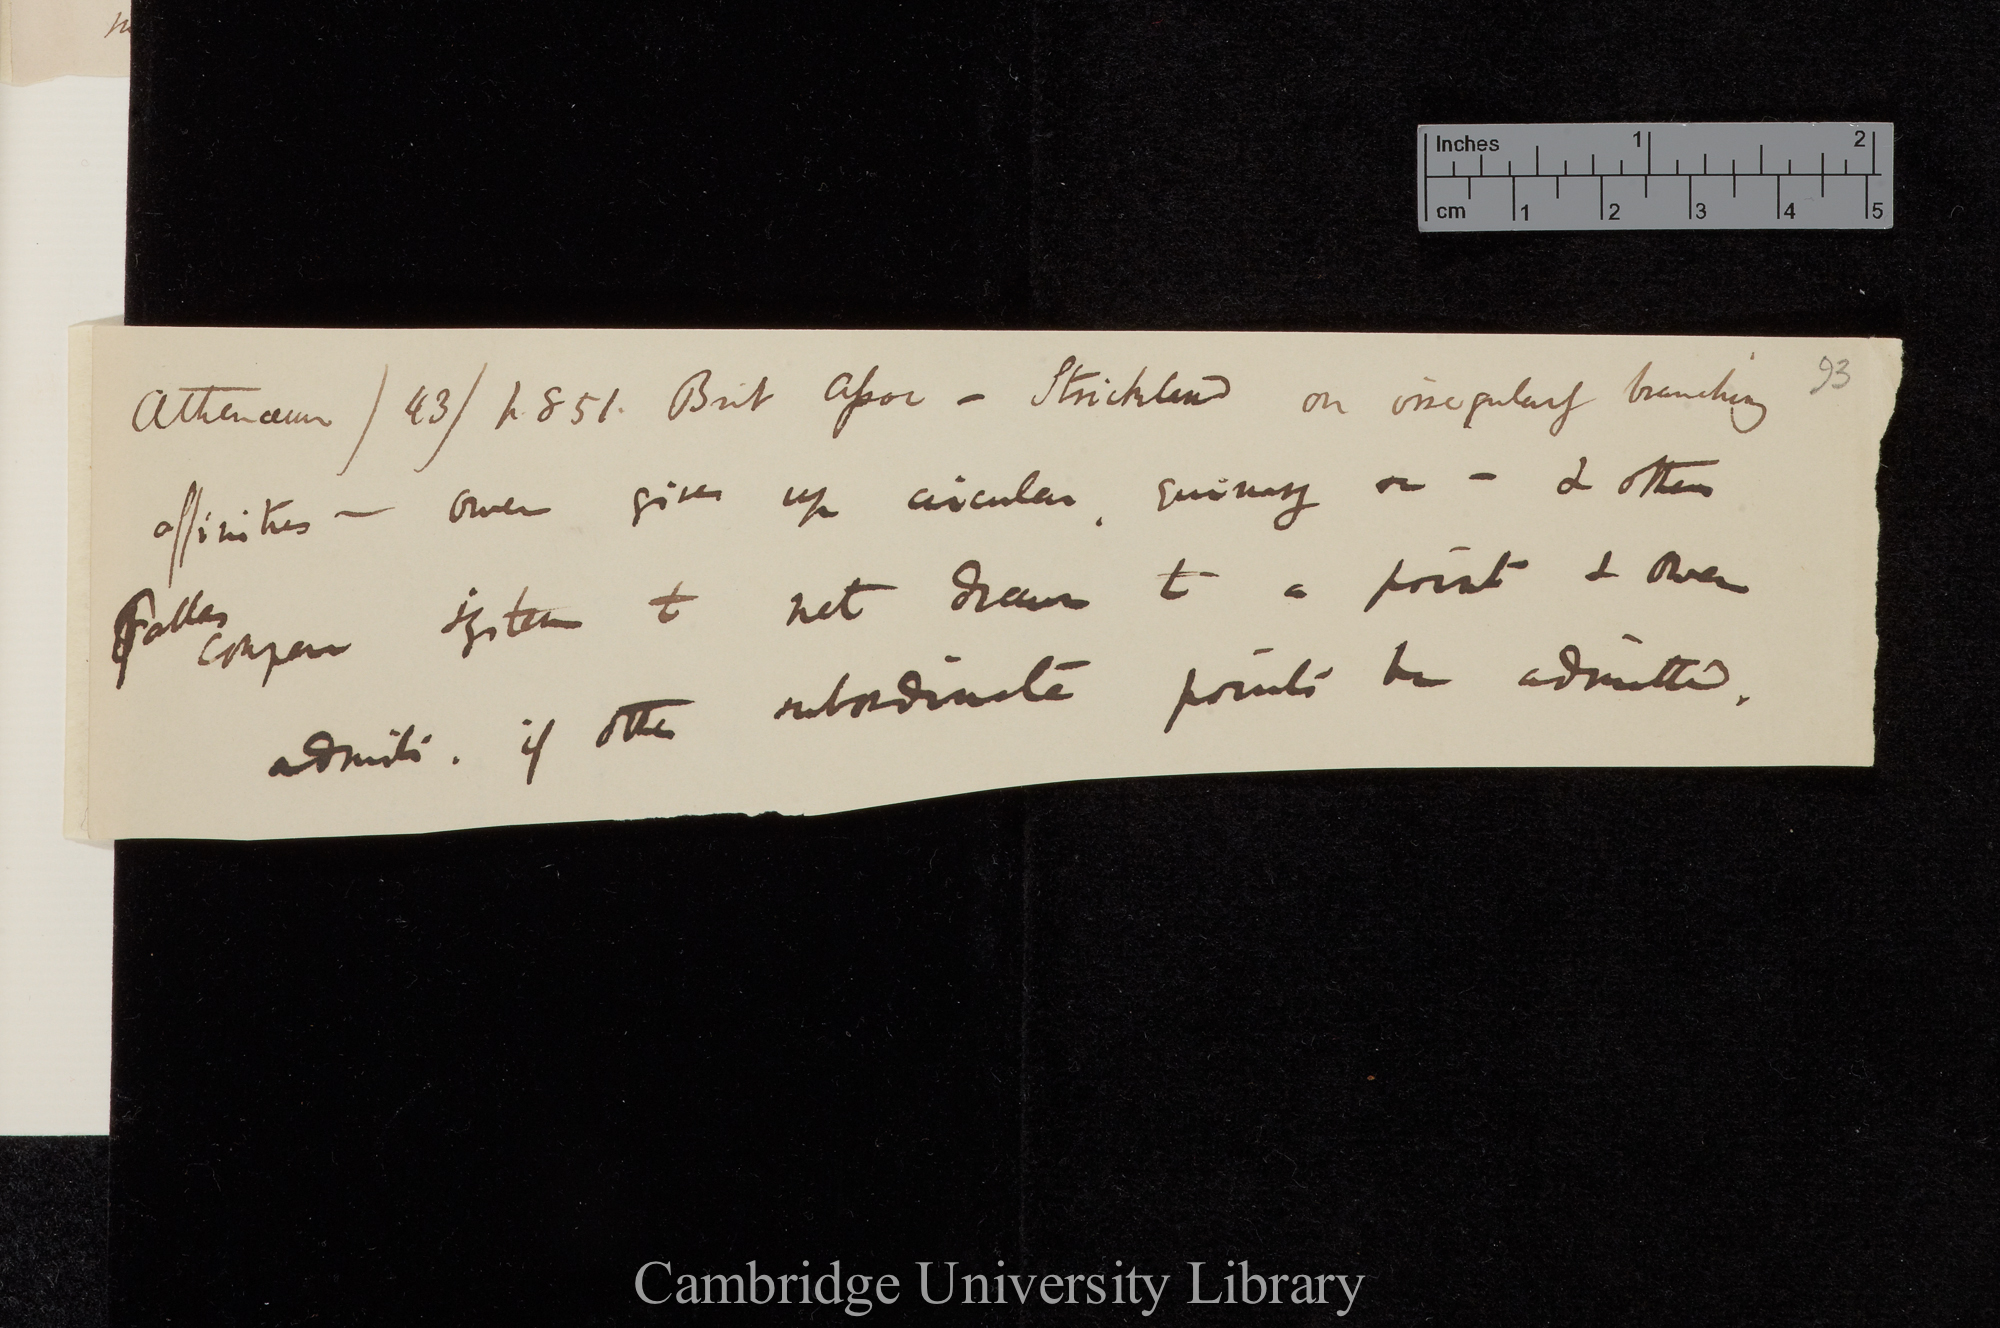 93
Athenæum /43/ p. 851. Brit Assoc – Strickland on irregularly branching
affinities – Owen gives up circular, quinary – & others
compares system to net drawn to a point & Owen
admits. if other subordinate points be admitted.
Inches 1 2
cm 1 2 3 4 5
Cambridge University Library